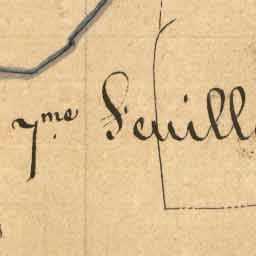 7.me Feuill